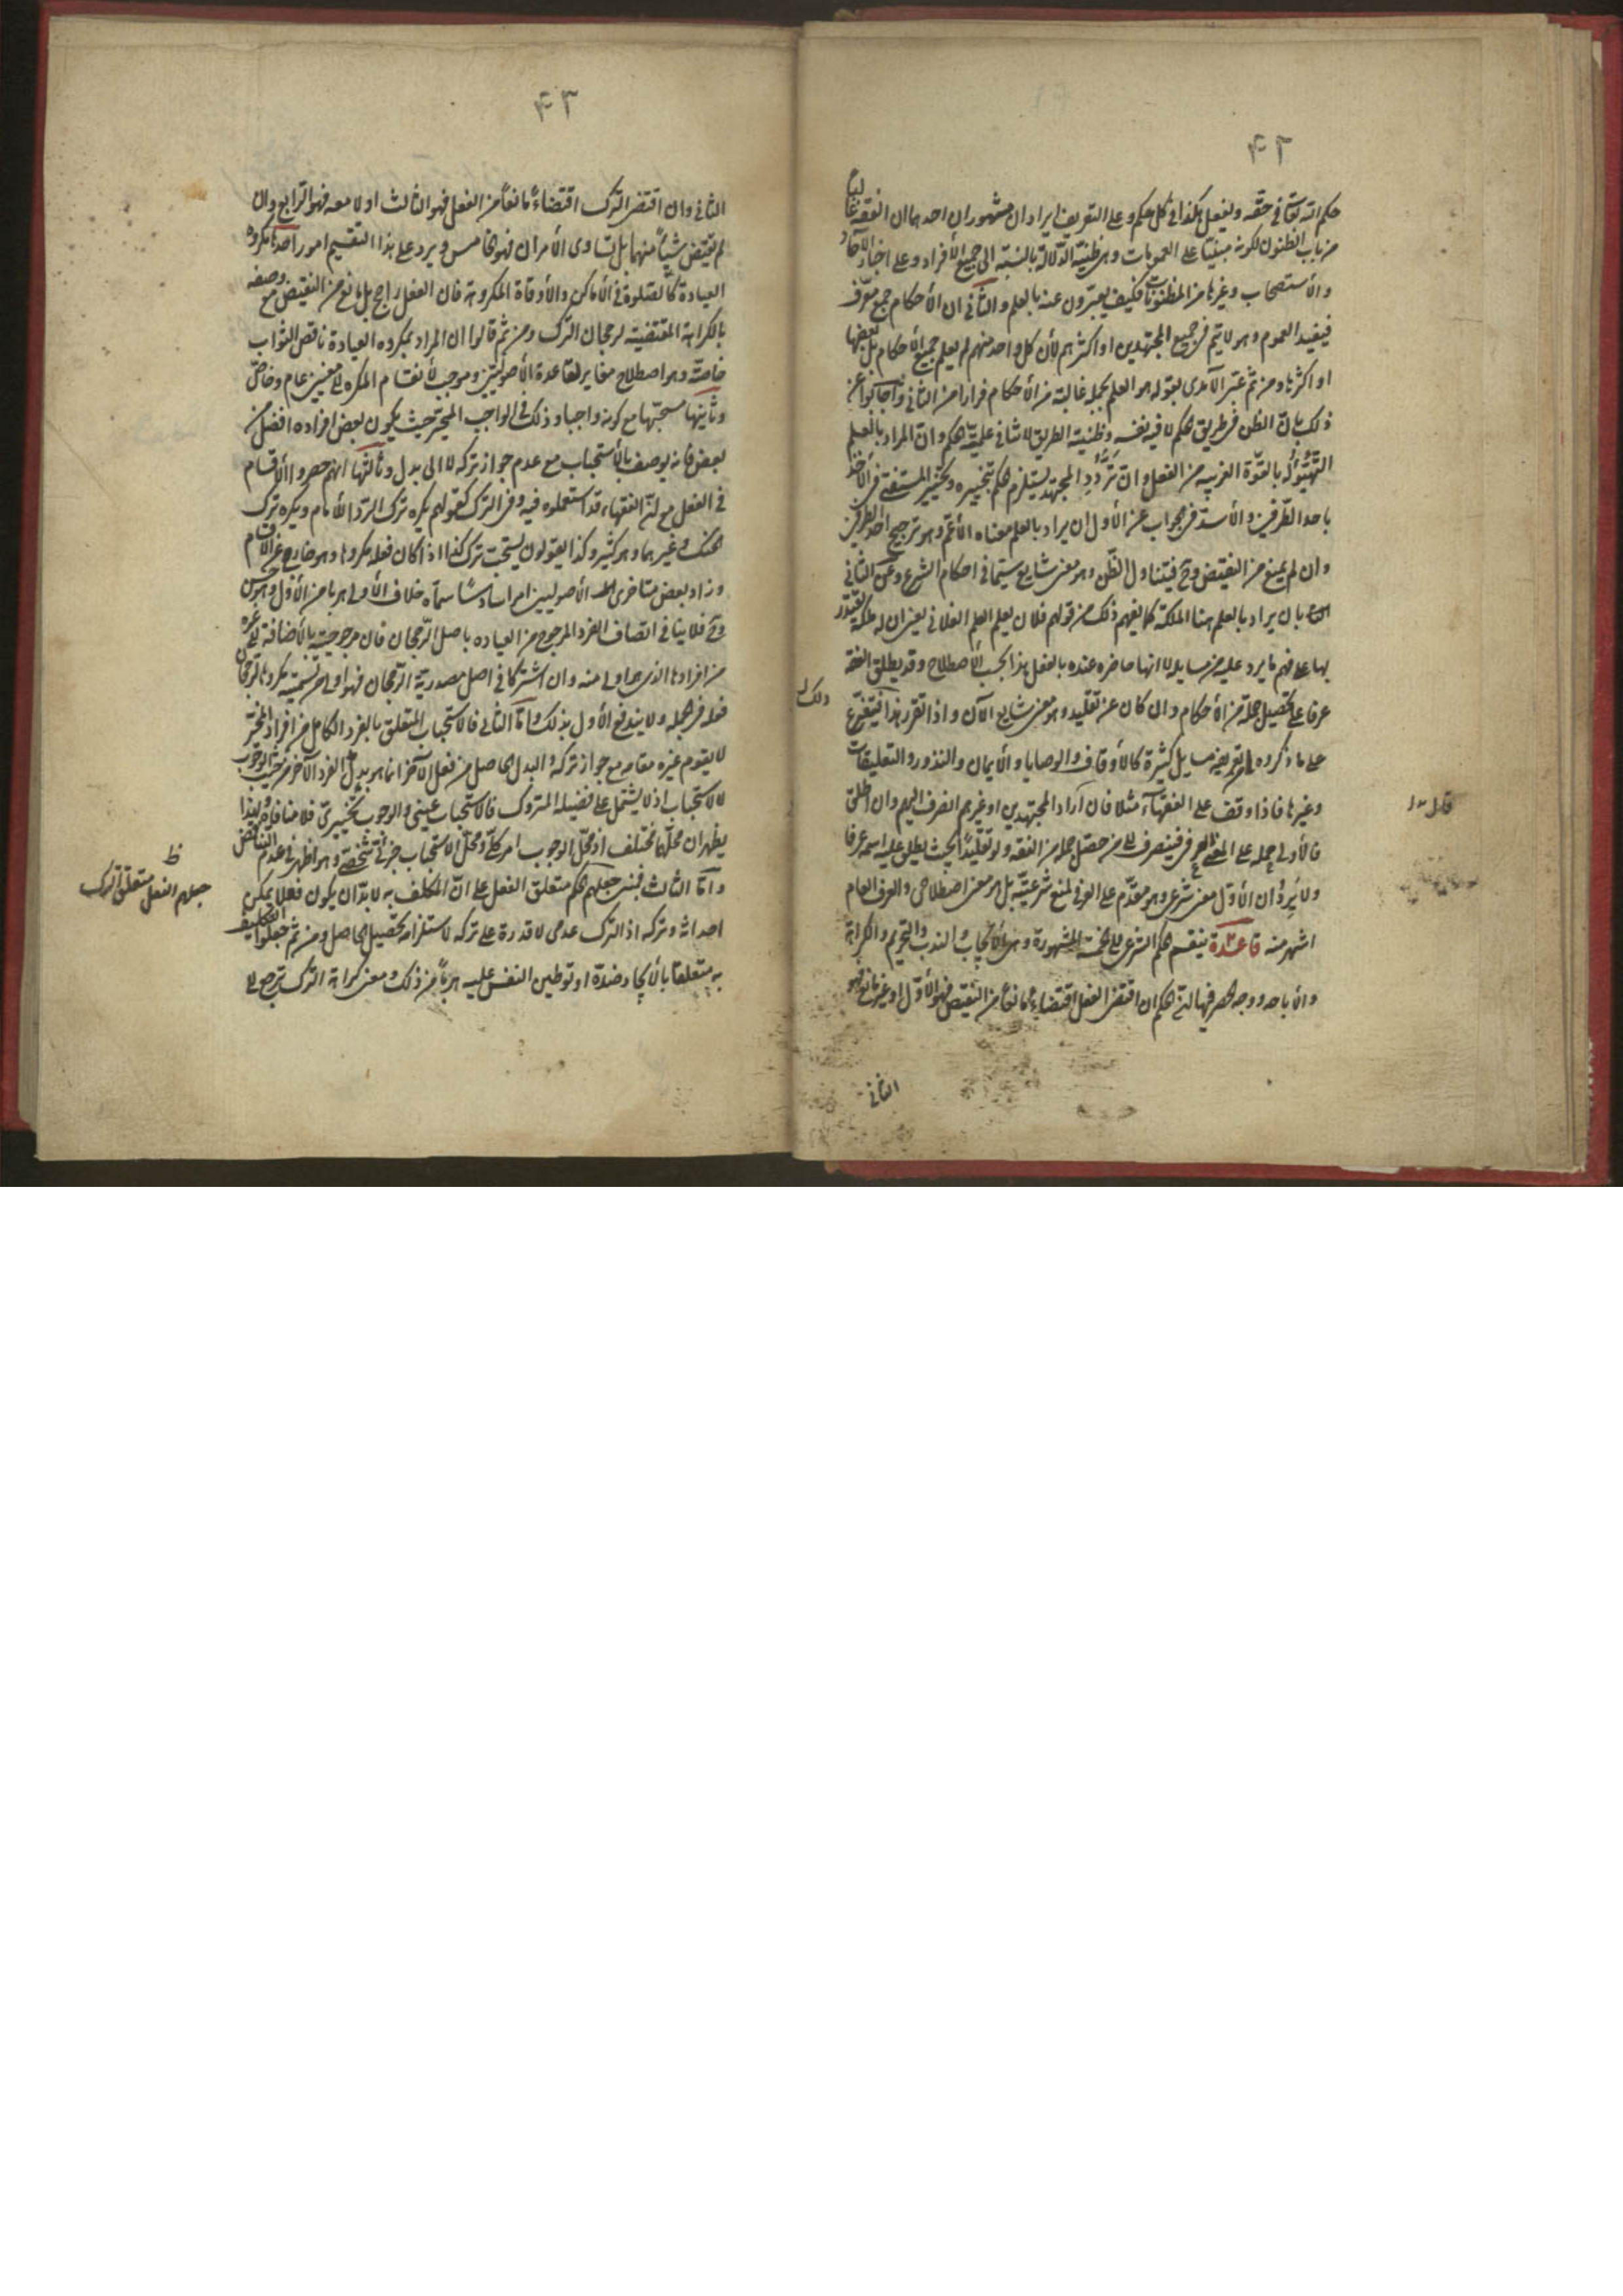 حكم الله تعالى في حقه ويفعل هكذا في كل حكم وعلى التعريف ايرادان مشهوران احدهما ان الفقه غالباً
من باب الظنون لكونه مبنيّا على العمومات وهي ظنية الدلالة بالنسبة الى جميع الأفراد وعلى اخبار الآحاد
والأستصحاب وغيرها من المظنونات فكيف يعبّرون عنه بالعلم والثاني ان الأحكام جمع معرّف
فيفيد العموم وهو لا يتم في جميع المجتهدين او اكثرهم لأن كل واحد منهم لم يعلم جميع الأحكام بل بعضها
او اكثرها ومن ثم عبّر الآمدى بقوله هو العلم بجملة غالبة من الأحكام فرارا من الثاني واجابوا عن
ذلك بانّ الظن في طريق الحكم لا فيه نفسه وظنية الطريق لا تنافي علميّة الحكم وانّ المراد بالعلم
التهيّؤ له بالقوّة القريبه من الفعل وان تَردُّدِ المجتهد يستلزم الحكم بتخييره وتخيير المستفتي في الأخذ
باحد الطّرفين والأسدّ في الجواب عن الأول ان يراد بالعلم معناه الأعمّ وهو ترجيح احد الطرفين
وان لم يمنع من النقيض وح فيتناول الظّن وهو معنى شايع سيّما في احكام الشرع وعن الثاني
بان يراد بالعلم هنا الملكة كما يفهم ذلك من قولهم فلان يعلم العلم الفلاني يعنى ان له ملكة يقتدر
بها على فهم ما يرد عليه من مسايله لا انها حاضره عنده بالفعل هذا بحسب الأصطلاح وقد يطلق الفقه
عرفا على تحصيل جملة من الأحكام وان كان عن تقليد وهو معنى شايع الآن واذا تقرر هذا فيتفرّع
على ما ذكروه في تعريفه مسايل كثيرة كالأوقاف والوصايا والأيمان والنذور والتعليقات
وغيرها فاذا وقف على الفقهاء مثلا فان اراد المجتهدين او غيرهم انصرف اليهم وان اطلق
فالأولى حمله على المعنى العرفي فينصرف الى من حصّل جملة من الفقه ولو تقليداً بحيث يطلق عليه اسمه عرفا
ولا يَرِدُ ان الأول معنى شرعى وهو مقدّم على العرفي لمنع شرعيّته بل هو معنى اصطلاحى والعرف العام
اشهر منه قاعدة ينقسم الحكم الشرعى الى الخمسة المشهورة وهي الأيجاب والندب والتحريم والكراهة
والأباحه ووجه الحصر فيها انّ الحكم ان اقتضى الفعل اقتضاءً مانعاً من النقيض فهو الأول او غير مانع فهو
الثاني
الثاني وان اقتضى الترك اقتضاءً مانعاً من الفعل فهو الثالث او لا معه فهو الرابع وان
لم يقتض شيئاً منهما بل تساوى الأمران فهو الخامس ويرد على هذا التقسيم امور احدها مكروه
العبادة كالصّلوة في الأماكن والأوقاة المكروهة فان الفعل راجح بل مانع من النقيض مع وصفه
بالكراهة المقتضية لرجحان الترك ومن ثم قالوا ان المراد بمكروه العبادة ناقص الثواب
خاصّة وهو اصطلاح مغاير لقاعدة الأصوليّين وموجب لأنقسام المكره الى معنيين عام وخاصّ
وثانيها مستحبّها مع كونه واجبا وذلك في الواجب المخيّر حيث يكون بعض افراده افضل من
بعض فانه يوصف بالأستحباب مع عدم جواز تركه لا الى بدل وثالثها انهم حصروا الأقسام
في الفعل مع انّ الفقهاء قد استعملوه فيه وفي الترك كقولهم يكره ترك الردا للأمام ويكره ترك
الحنك وغيرهما وهو كثير وكذا يقولون يستحبّ ترك كذا اذا كان فعله مكروها وهو خارج عن الأقسام
وزاد بعض متاخرى الأصوليين امراً سادساً سمّاه خلاف الأولى هربا من الأول وهو حسن
وح فلا ينافي اتصاف الفرد المرجوح من العباده باصل الرّجحان فان مرجوحيته بالأضافة الى غيره
من افرادها الذى هو اولى منه وان اشتركا في اصل مصدرية الرّجحان فهو اولى من تسميته مكروها لرجحان
فعله في الجمله ولا يندفع الأول بذلك وامّا الثاني فالاستحباب المتعلق بالفرد الكامل من افراد المخيّر
لا يقوم غيره مقامه مع جواز تركه والبدل الحاصل من فعل الآخر انما هو بدل الفرد الآخر من حيث الوجوب
لا الاستحباب اذ لا يشتمل على فضيلة المتروك فالاستحباب عيني والوجوب تخييري فلا منافاة وبهذا
يظهر ان محلّهما مختلف اذ محلّ الوجوب امر كلّى ومحل الاستحباب جزئى شخصىّ وهو اظهر في عدم التناقض
وامّا الثالث فمبنى جعلهم الحكم متعلق الفعل على انّ المكلف به لا بدّ ان يكون فعلا يمكن
احداثه وتركه اذ الترك عدمى لا قدرة على تركه لاستلزامه تحصيل الحاصل ومن ثم جعلوا التكليف
به متعلقا بالأيجاد ضدّه او توطين النفس عليه هرباً من ذلك ومعنى كراهة الترك يرجع الى
ظ
جعلهم الفعل متعلق الترك